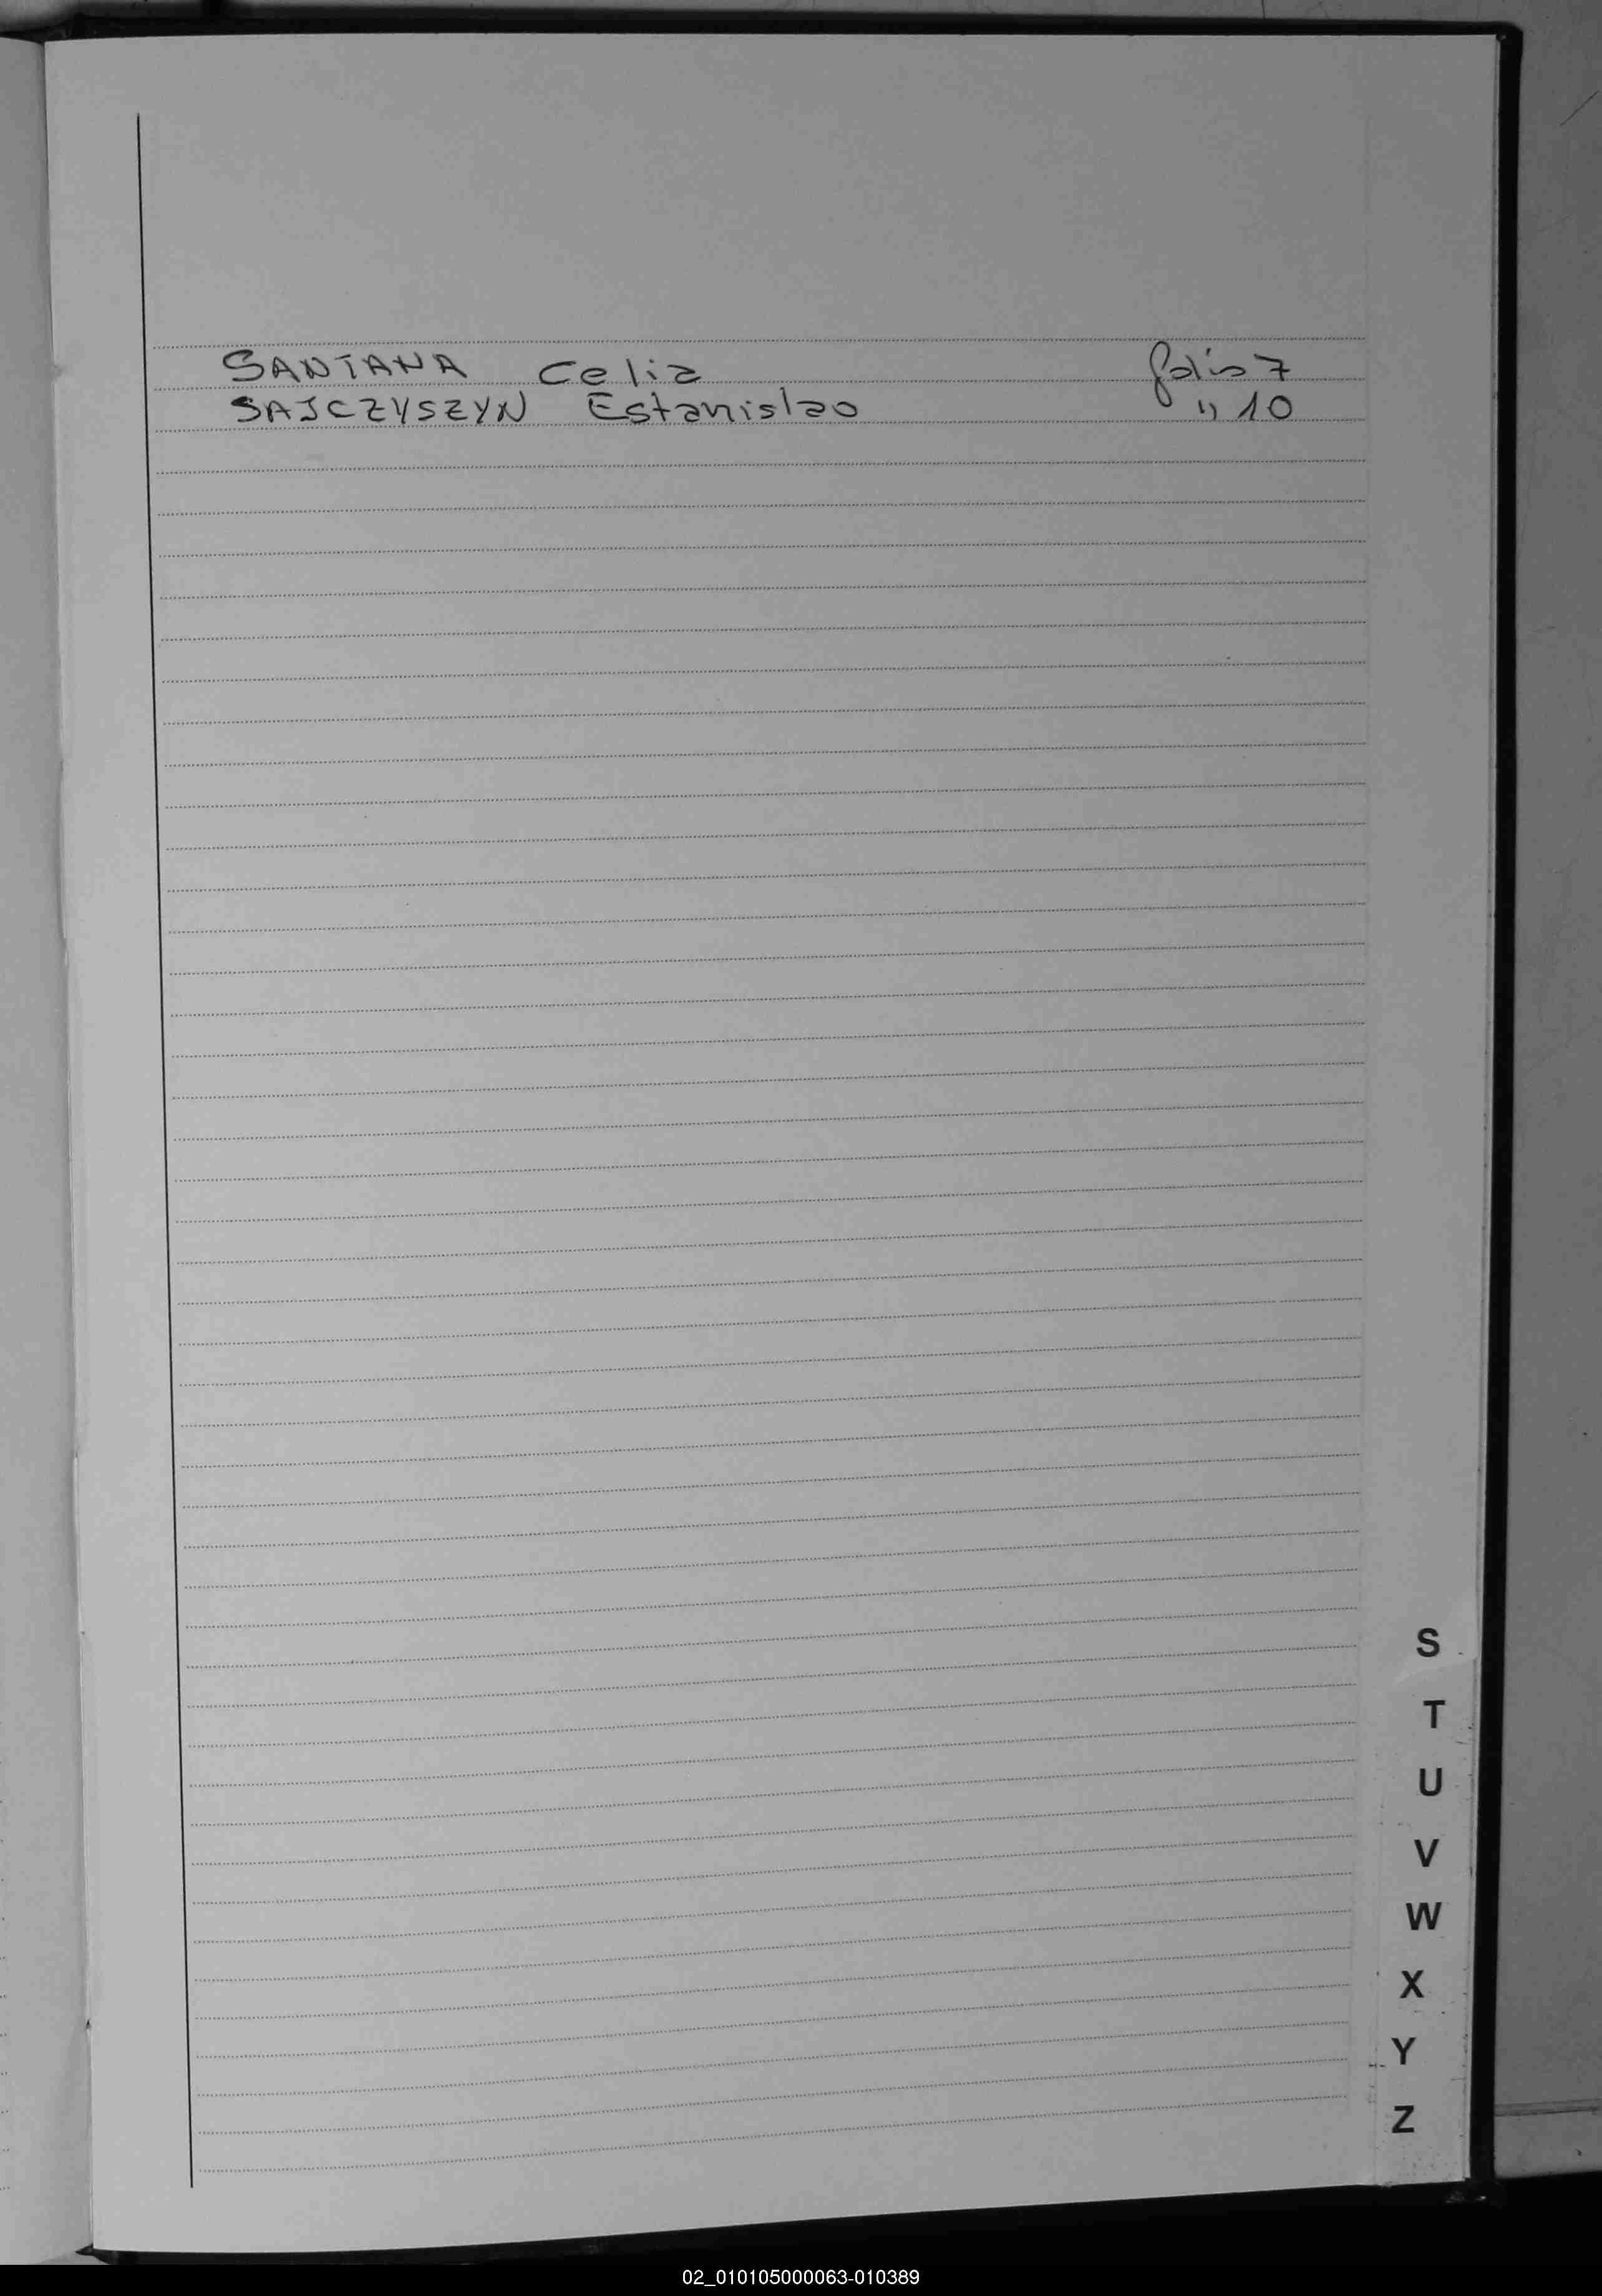 SANTANA Celia folio 7
SAJCZYSZYN Estanislao " 10
S
T
U
V
W
X
Y
Z
02_010105000063-010389